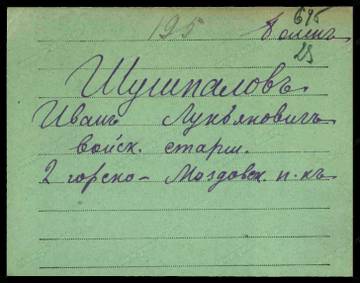 195
645
болен
25
Шушпаловъ
Иванъ Лукьяновичъ
войск. старш.
2 горско- Моздовск. п.-къ